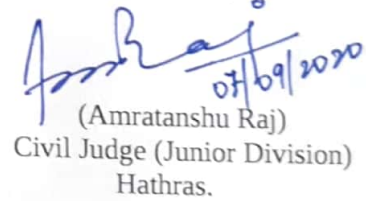 07/09/2020
(Amratanshu Raj)
Civil Judge (Junior Division)
Hathras.